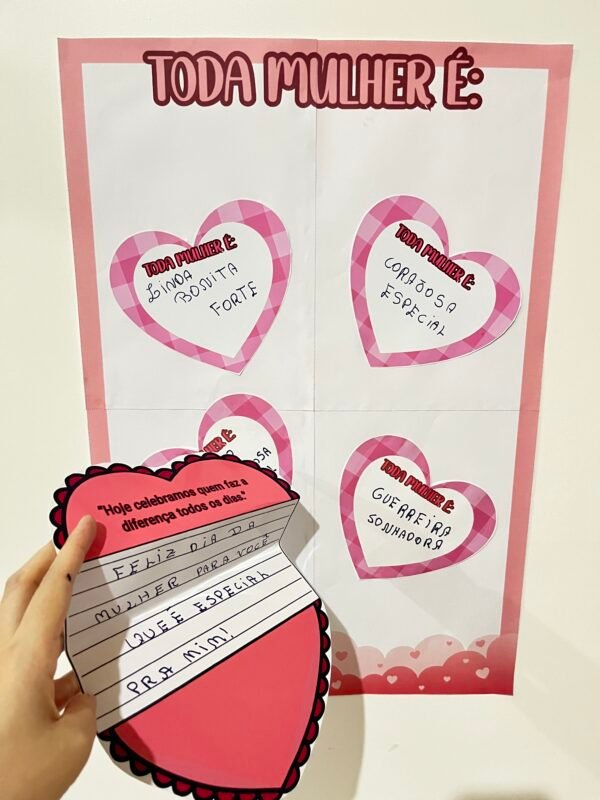 TODA MULHER É:
TODA MULHER É:
LINDA
BONITA
FORTE
TODA MULHER É:
CORAJOSA
ESPECIAL
TODA MULHER É:
GUERREIRA
SONHADORA
"Hoje celebramos quem faz a
diferença todos os dias."
FELIZ DIA DA
MULHER PARA VOCÊ
QUEÉ ESPECIAL
PRA MIM!